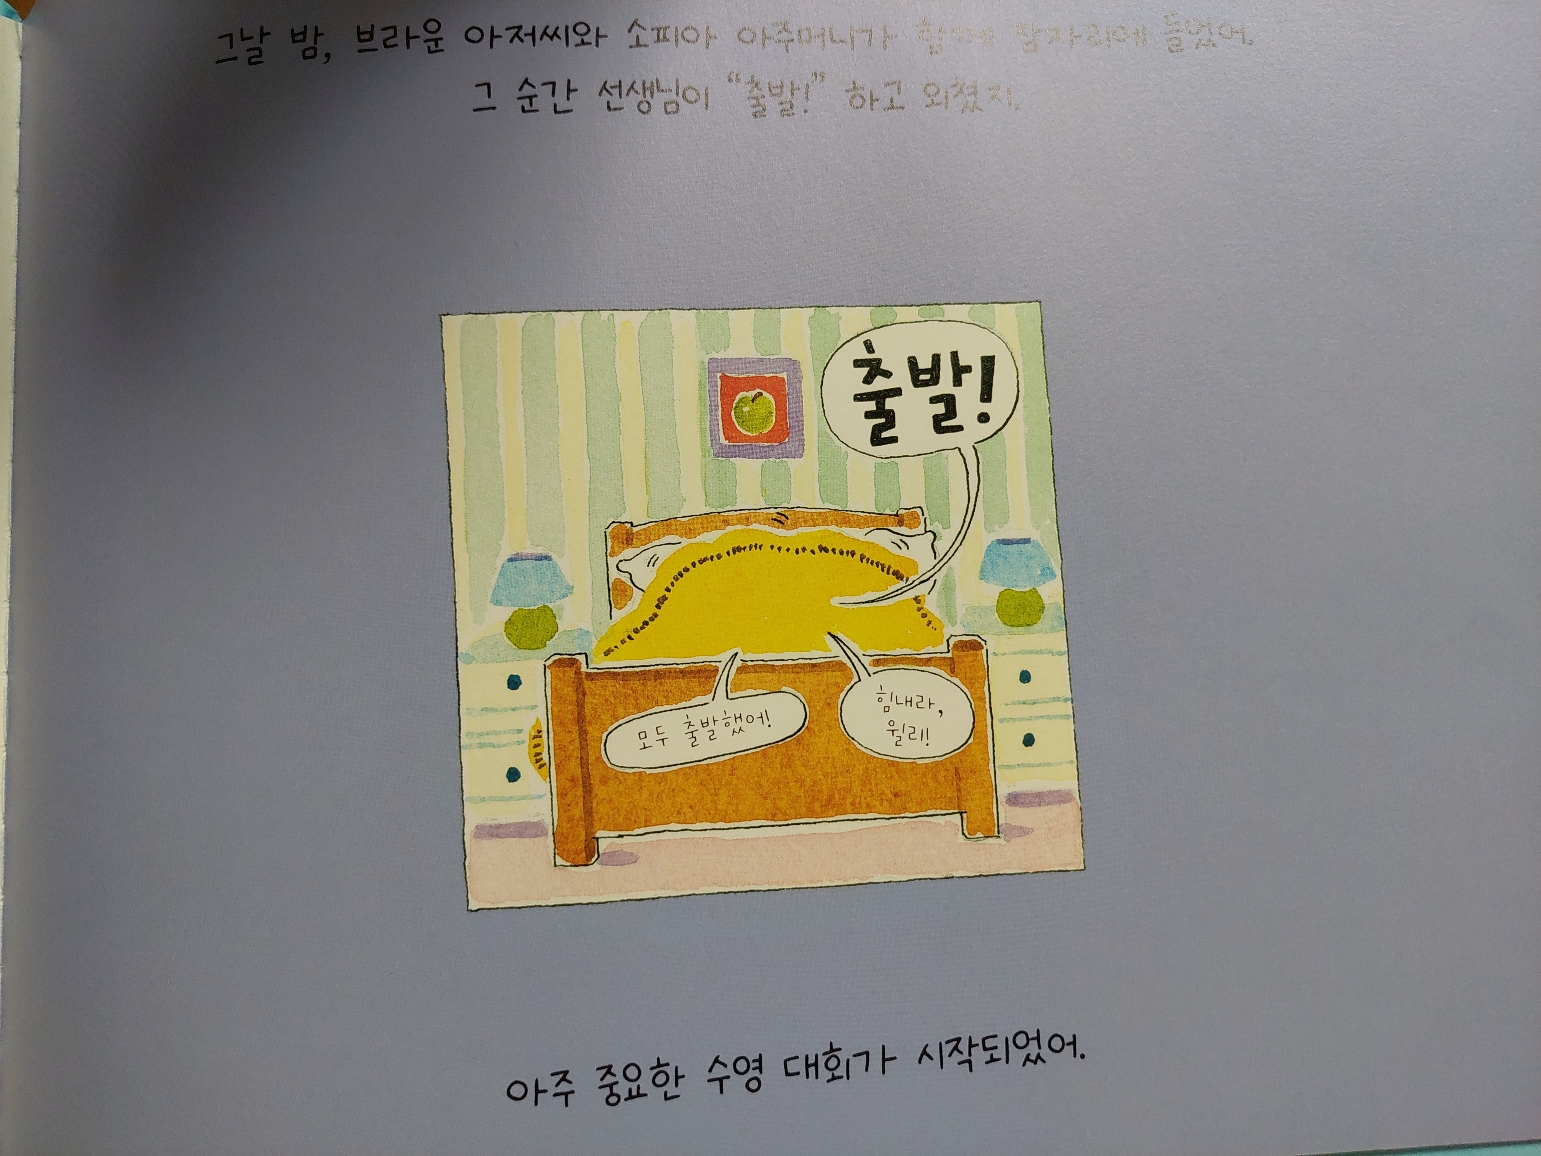 그날 밤, 브라운 아저씨와 소피아 아주머니가 함께 잠자리에 들었어.
그 순간 선생님이 “출발!” 하고 외쳤지.
출발!
모두 출발했어!
힘내라,
윌리!
아주 중요한 수영 대회가 시작되었어.